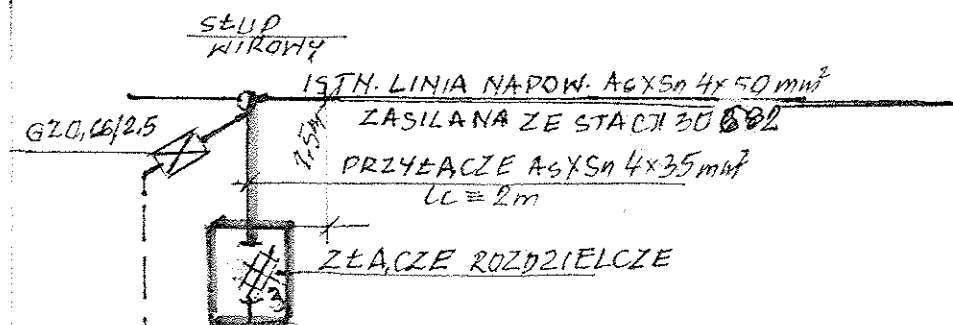 SŁUP
WIROWY
ISTN. LINIA NAPOW. AsXSn 4x50 mm²
ZASILANA ZE STACJI 30
GZ0,66/2.5
1,5m
PRZYŁĄCZE AsXSn 4x35 mm²
lc = 2m
ZŁĄCZE ROZDZIELCZE